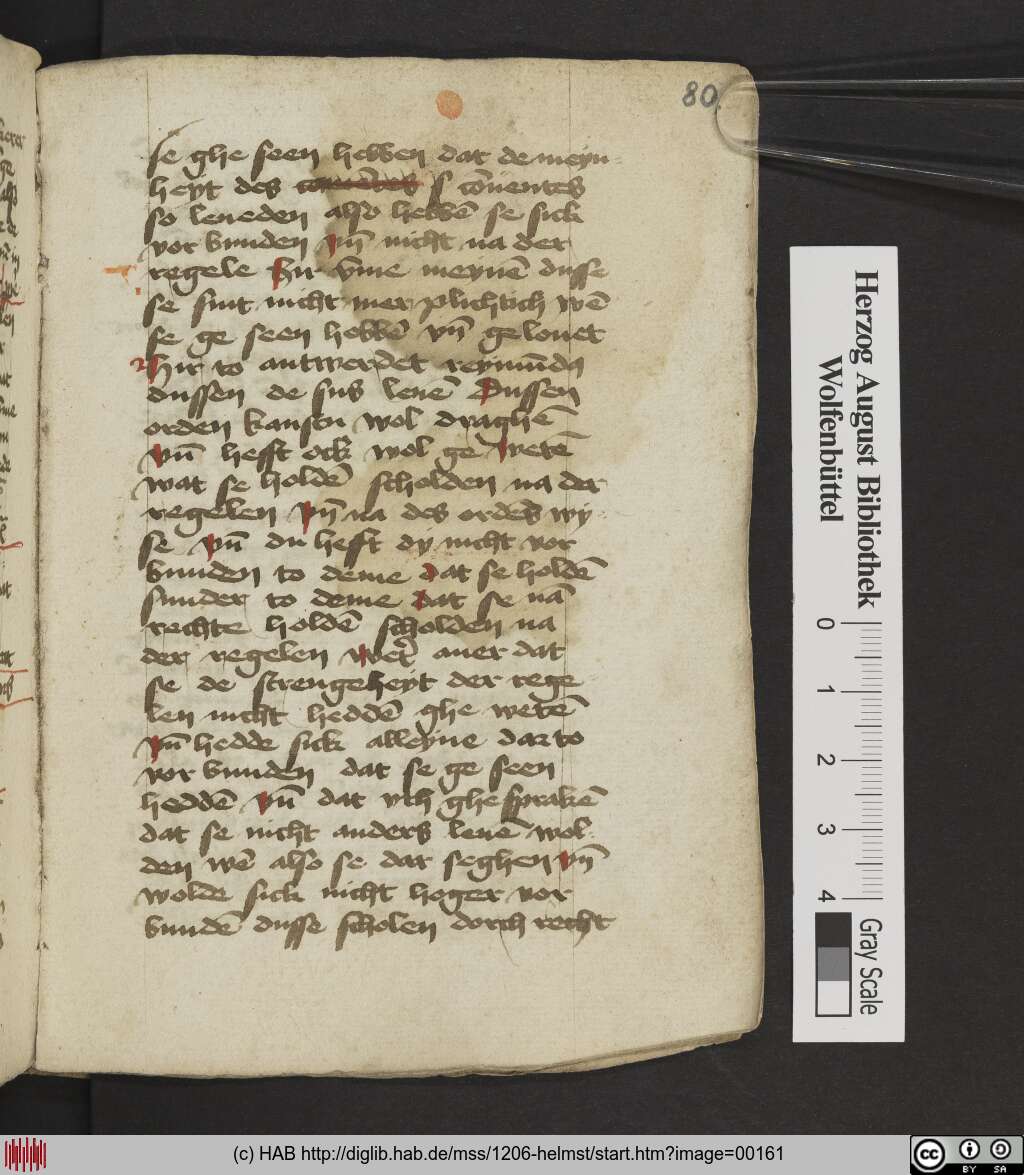 80
se ghe seen hebben dat de meyn
heyt des conuētes s cōuentes
so leueden also hebbē se sick
vor bunden vn̄ nicht na der
regele Hir vm̄e meynē dusse
se sint nicht mer plichtich wē
se ge seen hebbē vn̄ gelouet
Hir to antwerdet
dussen de sus leuē Dussen
orden kanstu wol draghē
vn̄ hefft ock wol ge wetē
wat se holdē scholden na der
regelen vn̄ na des ordēs wy
se vn̄ du hefft dy nicht vor
bunden to deme dat se holdē
sunder to deme dat se nā
rechte holdē scholden na
der regelen auer dat
se de strengeheyt der rege
len nicht heddē ghe wetē
vn̄ hedde sick alleyne dar to
vor bunden dat se ge seen
heddē vn̄ dat vth ghesprakē
dat se nicht anders leuē wol
den wē also se dar seghen vn̄
wolde sick nicht hoger vor
bundē dusse scholen dorch recht
Herzog August Bibliothek
Wolfenbüttel
0 1 2 3 4
Gray Scale
(c) HAB http://diglib.hab.de/mss/1206-helmst/start.htm?image=00161
cc BY SA